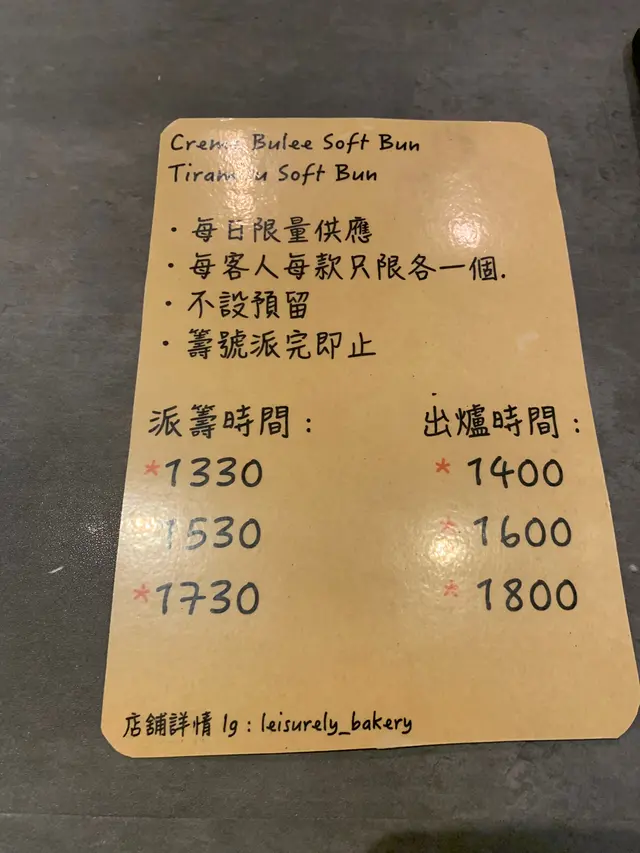 Creme Bulee Soft Bun
Tiramisu Soft Bun
· 每日限量供應
· 每客人每款只限各一個.
· 不設預留
· 籌號派完即止
派籌時間 : 出爐時間 :
*1330 * 1400
1530 * 1600
*1730 * 1800
店舖詳情 Ig : leisurely_bakery